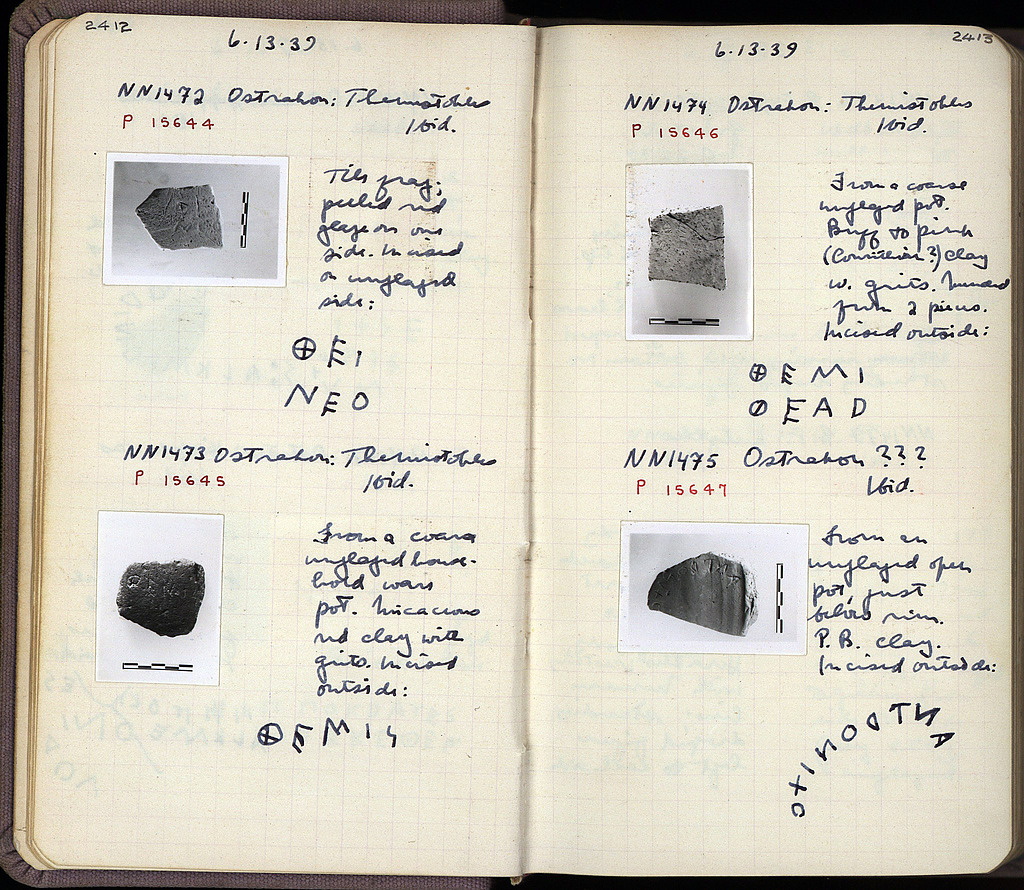 2412
6-13-39
NN1472 Ostrakon: Themistokles
P 15644
Ibid.
Tile frag;
peeled red
glaze on one
side. Incised
on unglazed
side:
ⴲ E I
N E O
NN1473 Ostrakon: Themistokles
P 15645
Ibid.
From a coarse
unglazed house-
hold ware
pot. Micaceous
red clay with
grits. Incised
outside:
ⴲ E M I
2413
6-13-39
NN1474 Ostrakon: Themistokles
P 15646
Ibid.
From a coarse
unglazed pot.
Buff to pink
(Corinthian?) clay
w. grits. Mended
from 2 pieces.
Incised outside:
ⴲ E M I
E A D
NN1475 Ostrakon ???
P 15647
Ibid.
From an
unglazed open
pot, just
below rim.
P.B. clay.
Incised outside: